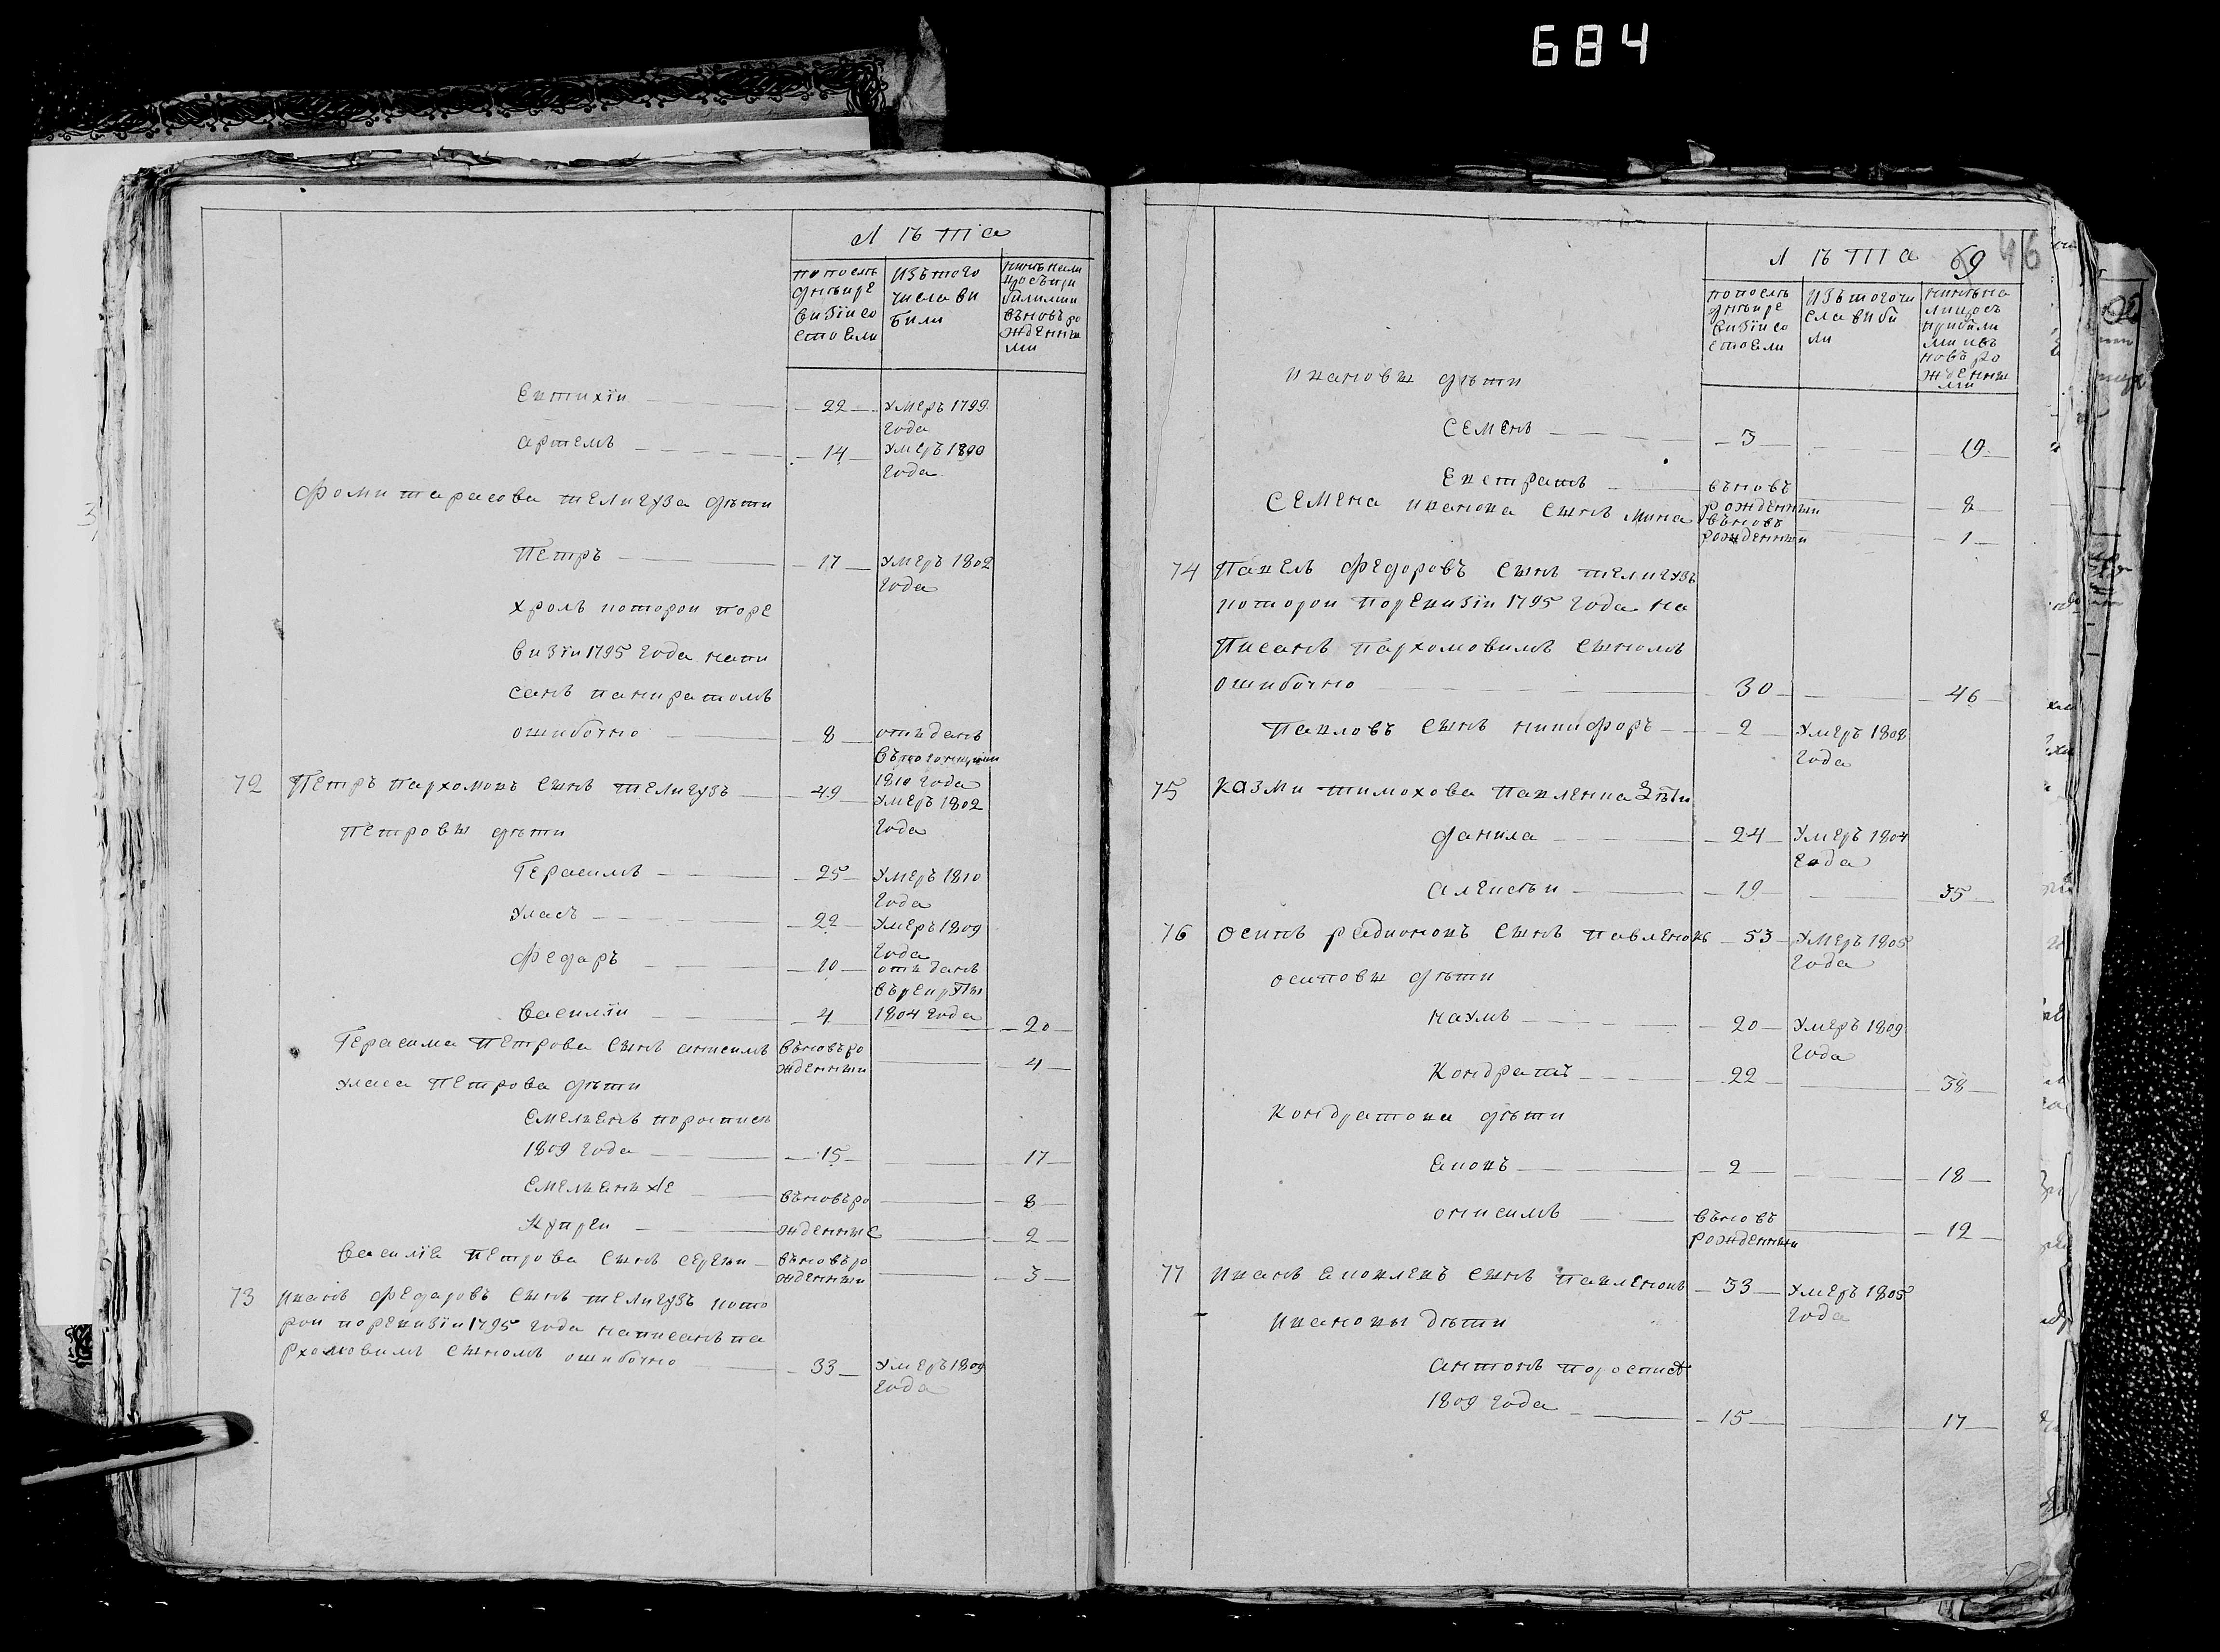 684
Лѣта
по послѣ
днѣй ре
визiи со
стояли
изъ того
числа вы
были
нынѣ на ли
цо съ при
былими и
въновь ро
жденны
ми
Евтихiй 22 умеръ 1799
года
артемъ 14 умеръ 1800
года
фоми тарасова телигуза дѣти
Петръ 17 умеръ 1802
года
хролъ которой поре
визiи 1795 года напи
санъ панкратомъ
ошибочно 8 отъданъ
1810 года
72 Петръ пархомовъ сынъ телигузъ 49 умеръ 1802
года
петровы дѣти
Герасимъ 25 умеръ 1810
года
уласъ 22 умеръ 1809
года
федаръ 10 отъданъ
върекруты
1804 года
василiй 4 20
Герасима петрова сынъ анисимъ въновъро
жденный 4
уласа петрова дѣти
емельянъ поросписи
1809 года 15 17
емельянъ же въновъро 8
купрей жденные 2
василiя петрова сынъ сергей въновъро
жденный 3
73 иванъ федаровъ сынъ телигузъ кото
рой поревизiи 1795 года написанъ па
рхомовимъ сыномъ ошибочно 33 умеръ 1809
года
Лѣта 69 46
по послѣ
днѣй ре
визiи со
стояли
изъ того чи
сла выбы
ли
нынѣ на
лицо съ
прибыли
ми ивъ
новъ ро
жденны
ми
ивановы дѣти
семенъ 3 19
Евстратъ въновъ
рожденный 8
семена иванова сынъ мина въновъ
рожденный 1
74 Павелъ федоровъ сынъ телигузъ
которой поревизiи 1795 года на
писанъ пархомовимъ сыномъ
ошибочно 30 46
павловъ сынъ никифоръ 2 умеръ 1802
года
75 казми тимохова павленка дѣти
данила 24 умеръ 1804
года
алексѣй 19 35
76 осипъ радионовъ сынъ павленокъ 53 умеръ 1805
года
осиповы дѣти
наумъ 20 умеръ 1809
года
кондратъ 22 38
кондратова дѣти
яковъ 2 18
онисимъ въновъ
рожденный 12
77 иванъ яковлевъ сынъ павленокъ 53 умеръ 1805
года
ивановы дѣти
антонъ поросписи
1809 года 15 17